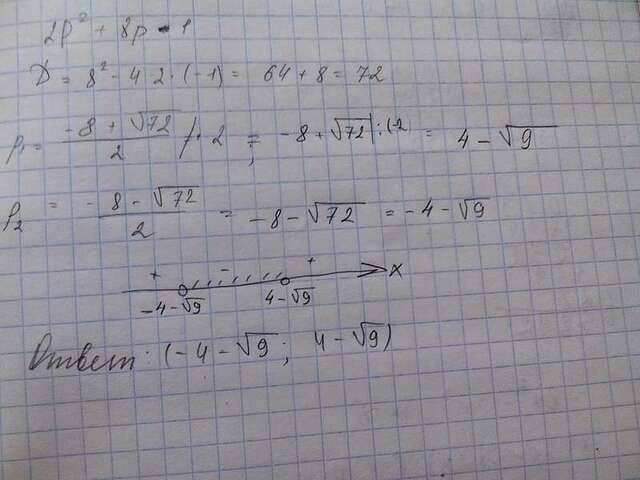 2p² + 8p - 1
D = 8² - 4·2·(-1) = 64 + 8 = 72
p₁ = (-8 + √72)/2 /· 2 = -8 + √72 |:(-2 = 4 - √9
p₂ = (-8 - √72)/2 = -8 - √72 = -4 - √9
+ - + x
-4-√9 4-√9
Ответ: (-4 - √9; 4 - √9)